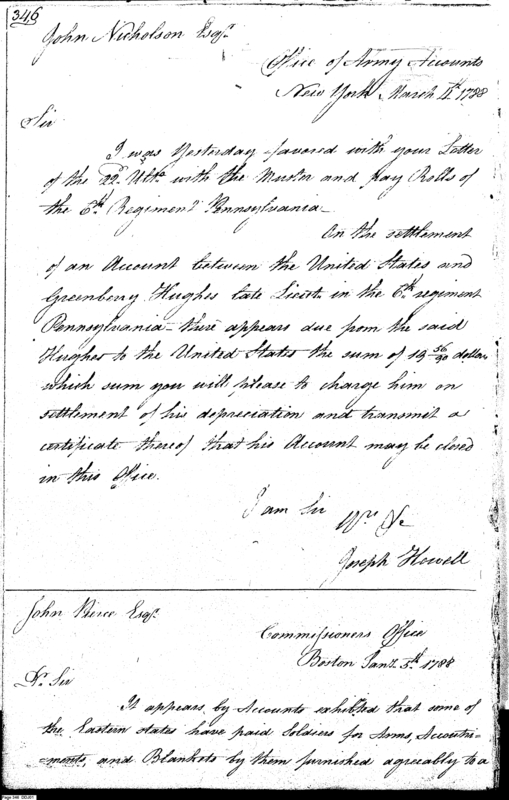 346
John Nicholson Esqr.
Office of Army Accounts
New York March 4th. 1788
Sir
I was Yesterday favored with your Letter
of the 22d. Ulto. with the Muster and pay Rolls of
the 6th. Regiment Pennsylvania
On the settlement
of an Account between the United States and
Greenberry Hughes late Lieut. in the 6th. regiment
Pennsylvania there appears due from the said
Hughes to the United States the sum of 19 56/90 dollars
which sum you will please to charge him on
settlement of his depreciation and transmit a
certificate thereof that his Account may be closed
in this Office.
I am Sir
Yrs. &c
Joseph Howell
John Pierce Esqr.
Commissioners Office
Boston Jany. 5th. 1788
Dr. Sir
It appears by Accounts exhibited that some of
the Eastern States have paid Soldiers for Arms, Accoutre-
=ments, and Blankets by them furnished agreeably to a